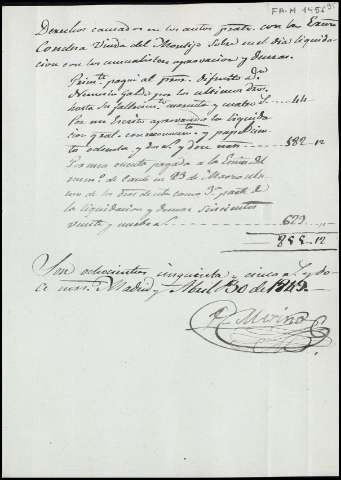 FA.M 1456
Derechos causados en los autos pratc. con la Exma
Condesa Viuda del Montijo sobre en el dia liquida-
cion con los acumulistas aprovacion y demas.
pagué al proc. difunto Dn
por los ultimos dros.
hasta su fallecimto. quarenta y cuatro rs 44
Por un Escrito aprovando la liquida-
cion gral. con y papl. cien-
to ochenta y dos rs. y doce mrs 182 .. 12
Por una cuenta pagada a la Escna del
numo. de en 23 de Marzo ulti-
mo de los dros de ella como 3ª parte de
la liquidacion y demas seiscientos
veinte y nueve rs 629 ..
855 .. 12
Son ochocientos cinquenta y cinco rs y do-
ce mrs. Madrid y Abril 30 de 1843.
Merino